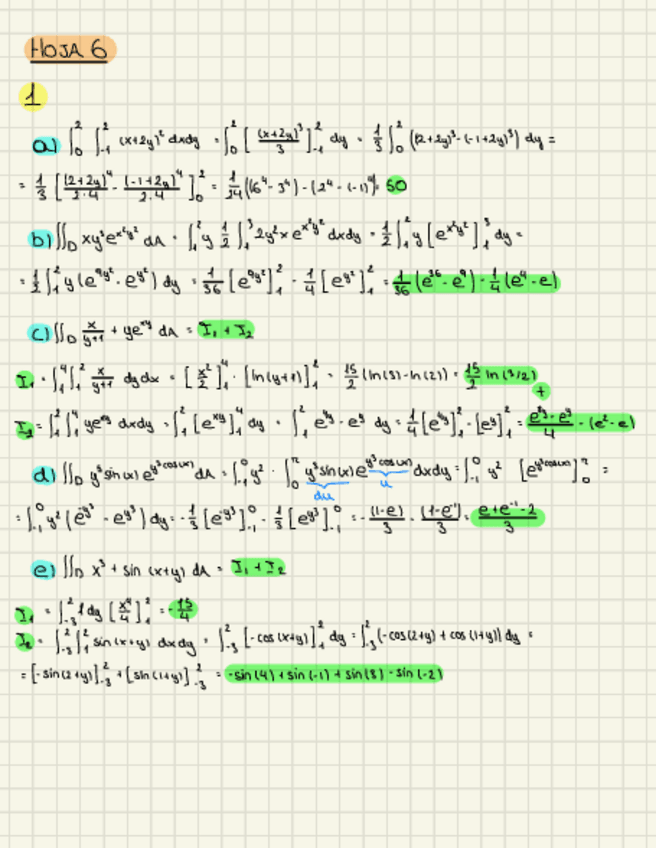 HOJA 6
1
a) ∫₀² ∫₋₁² (x+2y)² dxdy = ∫₀² [ (x+2y)³/3 ]₋₁² dy = 1/3 ∫₀² ((2+2y)³-(-1+2y)³) dy =
= 1/3 [ (2+2y)⁴/2·4 - (-1+2y)⁴/2·4 ]₀² = 1/24 ((6⁴-3⁴)-(2⁴-(-1)⁴)) = 50
b) ∫∫_D xy³e^(x²y²) dA = ∫₁² y 1/2 ∫₁³ 2y²x e^(x²y²) dxdy = 1/2 ∫₁² y [e^(x²y²)]₁³ dy =
= 1/2 ∫₁² y (e^(9y²) - e^(y²)) dy = 1/36 [e^(9y²)]₁² - 1/4 [e^(y²)]₁² = 1/36 (e³⁶-e⁹) - 1/4 (e⁴-e)
c) ∫∫_D x/(y+1) + ye^(xy) dA = I₁ + I₂
I₁ = ∫₁⁴ ∫₁² x/(y+1) dydx = [x²/2]₁⁴ · [ln(y+1)]₁² = 15/2 (ln(3)-ln(2)) = 15/2 ln(3/2)
+
I₂ = ∫₁² ∫₁⁴ ye^(xy) dxdy = ∫₁² [e^(xy)]₁⁴ dy = ∫₁² e^(4y) - e^y dy = 1/4 [e^(4y)]₁² - [e^y]₁² =
d) ∫∫_D y⁵ sin(x) e^(y³cos(x)) dA = ∫₋₁⁰ y² · ∫₀^π y³ sin(x) e^(y³cos(x)) dxdy = ∫₋₁⁰ y² [e^(y³cos(x))]₀^π =
du u
= ∫₋₁⁰ y² (e^(-y³) - e^(y³)) dy = -1/3 [e^(-y³)]₋₁⁰ - 1/3 [e^(y³)]₋₁⁰ = -(1-e)/3 - (1-e⁻¹)/3 = (e+e⁻¹-2)/3
e) ∫∫_D x³ + sin(x+y) dA = I₁ + I₂
I₁ = ∫₋₃² 1 dy [x⁴/4]₁² = 15/4
I₂ = ∫₋₃² ∫₁² sin(x+y) dxdy = ∫₋₃² [-cos(x+y)]₁² dy = ∫₋₃² (-cos(2+y) + cos(1+y)) dy =
= [-sin(2+y)]₋₃² + [sin(1+y)]₋₃² = -sin(4) + sin(-1) + sin(3) - sin(-2)